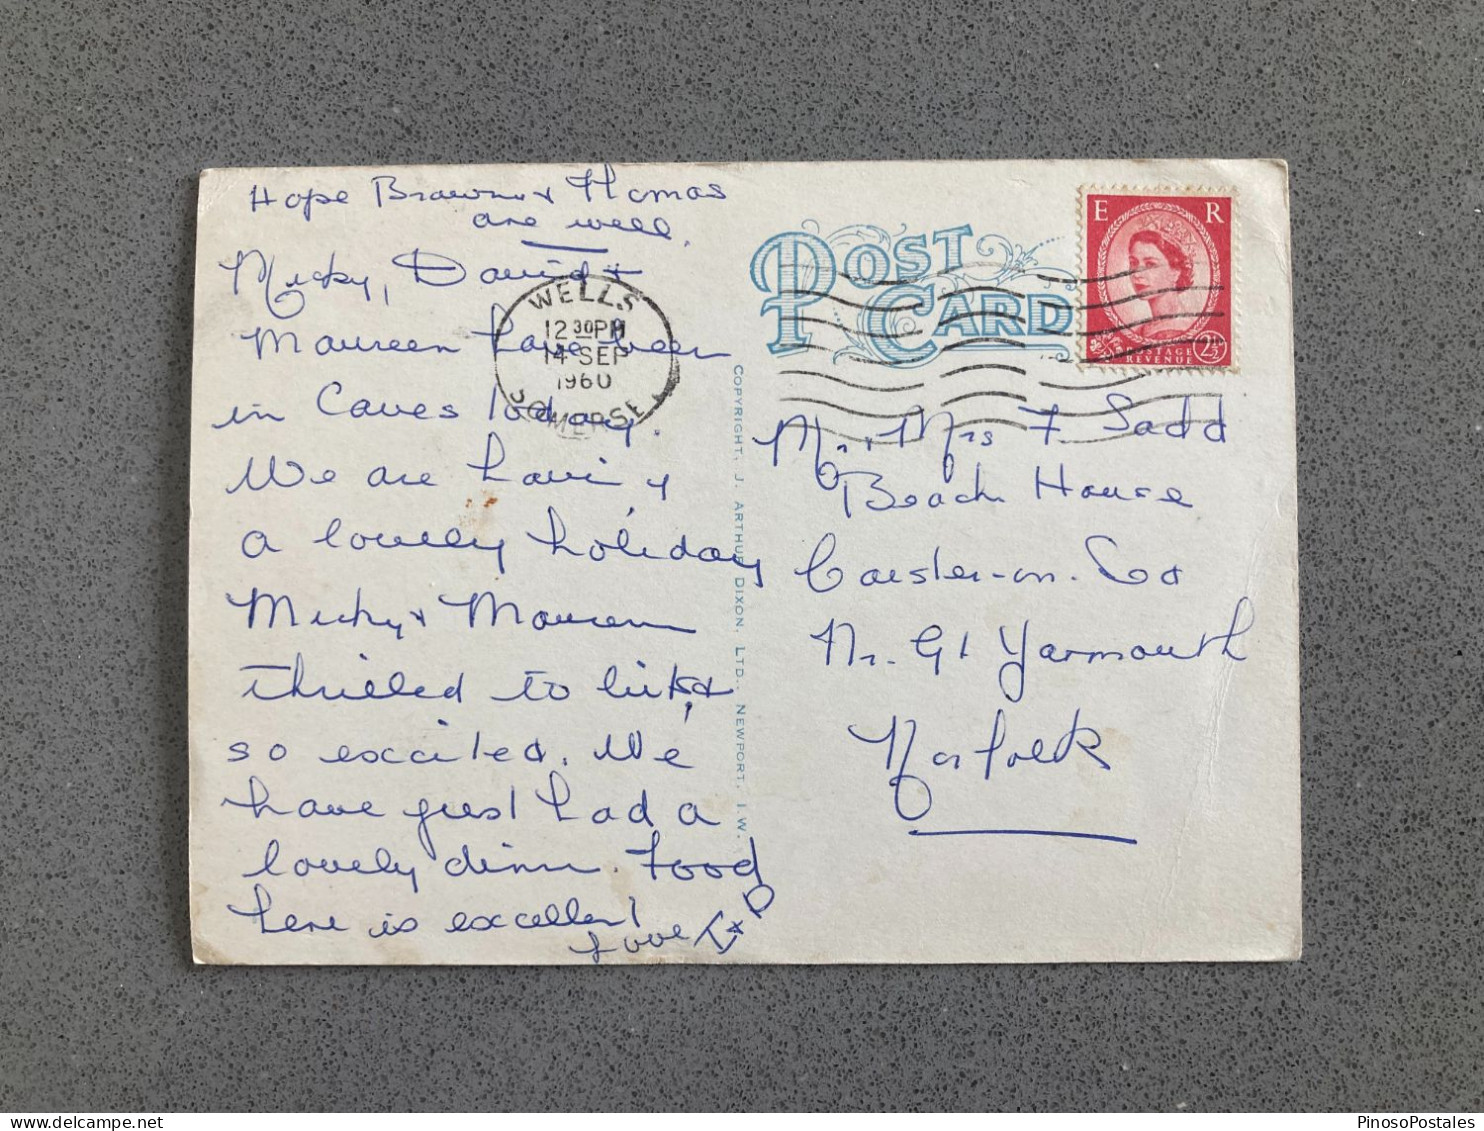 Hope Brown & Thomas
are well.
Micky, David &
Maureen have been
in Caves today.
We are having
a lovely holiday
Micky & Maureen
thrilled to bits &
so excited. We
have just had a
lovely dinner. Food
here is excellent
Love
WELLS
12 30 PM
14 SEP
1960
SOMERSET
POST CARD
E R
POSTAGE REVENUE 2½D
COPYRIGHT, J. ARTHUR DIXON, LTD., NEWPORT, I.W.
Mr & Mrs F Sadd
Beach House
Caister-on-Sea
Nr. Gt Yarmouth
Norfolk
PinosoPostales